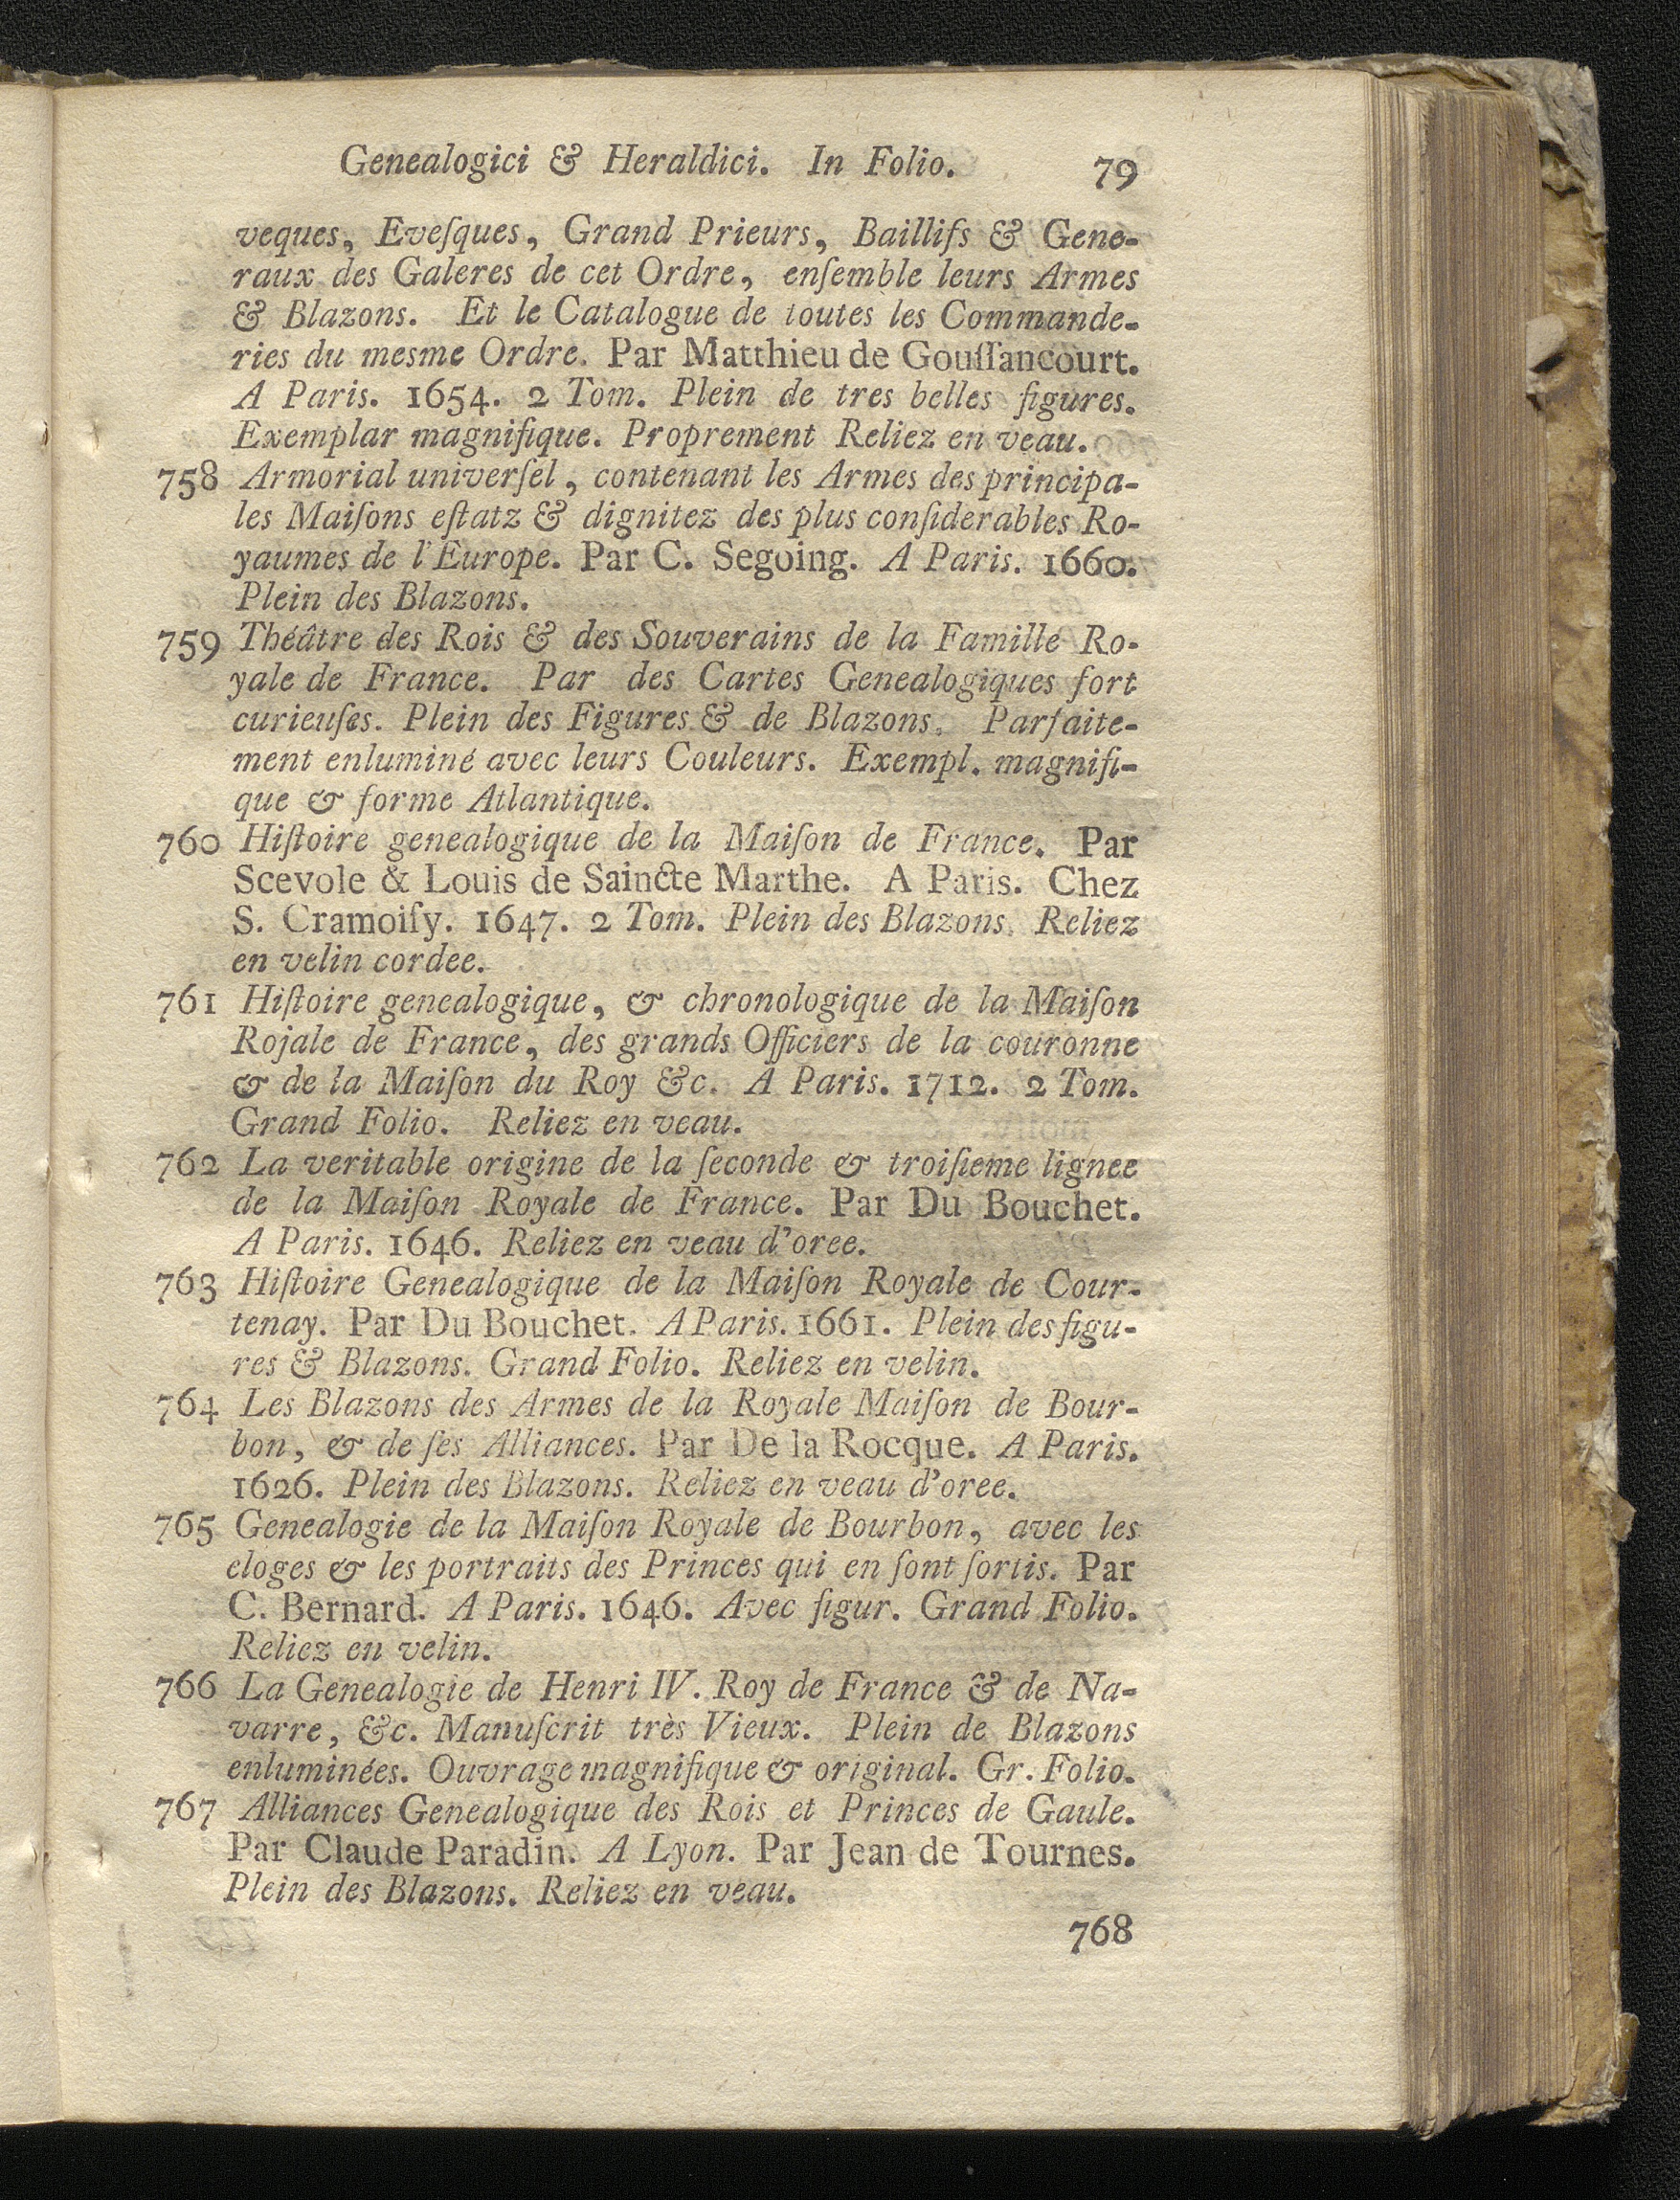 Genealogici & Heraldici. In Folio. 79
veques, Eveſques, Grand Prieurs, Baillifs & Gene-
raux des Galeres de cet Ordre, enſemble leurs Armes
& Blazons. Et le Catalogue de toutes les Commande-
ries du mesme Ordre. Par Matthieu de Gouſſancourt.
A Paris. 1654. 2 Tom. Plein de tres belles figures.
Exemplar magnifique. Proprement Reliez en veau.
758 Armorial univerſel, contenant les Armes des principa-
les Maiſons eſtatz & dignitez des plus conſiderables Ro-
yaumes de l'Europe. Par C. Segoing. A Paris. 1660.
Plein des Blazons.
759 Théâtre des Rois & des Souverains de la Famille Ro-
yale de France. Par des Cartes Genealogiques fort
curieuſes. Plein des Figures & de Blazons. Parfaite-
ment enluminé avec leurs Couleurs. Exempl. magnifi-
que & forme Atlantique.
760 Hiſtoire genealogique de la Maiſon de France. Par
Scevole & Louis de Saincte Marthe. A Paris. Chez
S. Cramoiſy. 1647. 2 Tom. Plein des Blazons. Reliez
en velin cordee.
761 Hiſtoire genealogique, & chronologique de la Maiſon
Rojale de France, des grands Officiers de la couronne
& de la Maiſon du Roy &c. A Paris. 1712. 2 Tom.
Grand Folio. Reliez en veau.
762 La veritable origine de la ſeconde & troiſieme lignee
de la Maiſon Royale de France. Par Du Bouchet.
A Paris. 1646. Reliez en veau d'oree.
763 Hiſtoire Genealogique de la Maiſon Royale de Cour-
tenay. Par Du Bouchet. A Paris. 1661. Plein des figu-
res & Blazons. Grand Folio. Reliez en velin.
764 Les Blazons des Armes de la Royale Maiſon de Bour-
bon, & de ſes Alliances. Par De la Rocque. A Paris.
1626. Plein des Blazons. Reliez en veau d'oree.
765 Genealogie de la Maiſon Royale de Bourbon, avec les
eloges & les portraits des Princes qui en ſont ſortis. Par
C. Bernard. A Paris. 1646. Avec figur. Grand Folio.
Reliez en velin.
766 La Genealogie de Henri IV. Roy de France & de Na-
varre, &c. Manuſcrit très Vieux. Plein de Blazons
enluminées. Ouvrage magnifique & original. Gr. Folio.
767 Alliances Genealogique des Rois et Princes de Gaule.
Par Claude Paradin. A Lyon. Par Jean de Tournes.
Plein des Blazons. Reliez en veau.
768